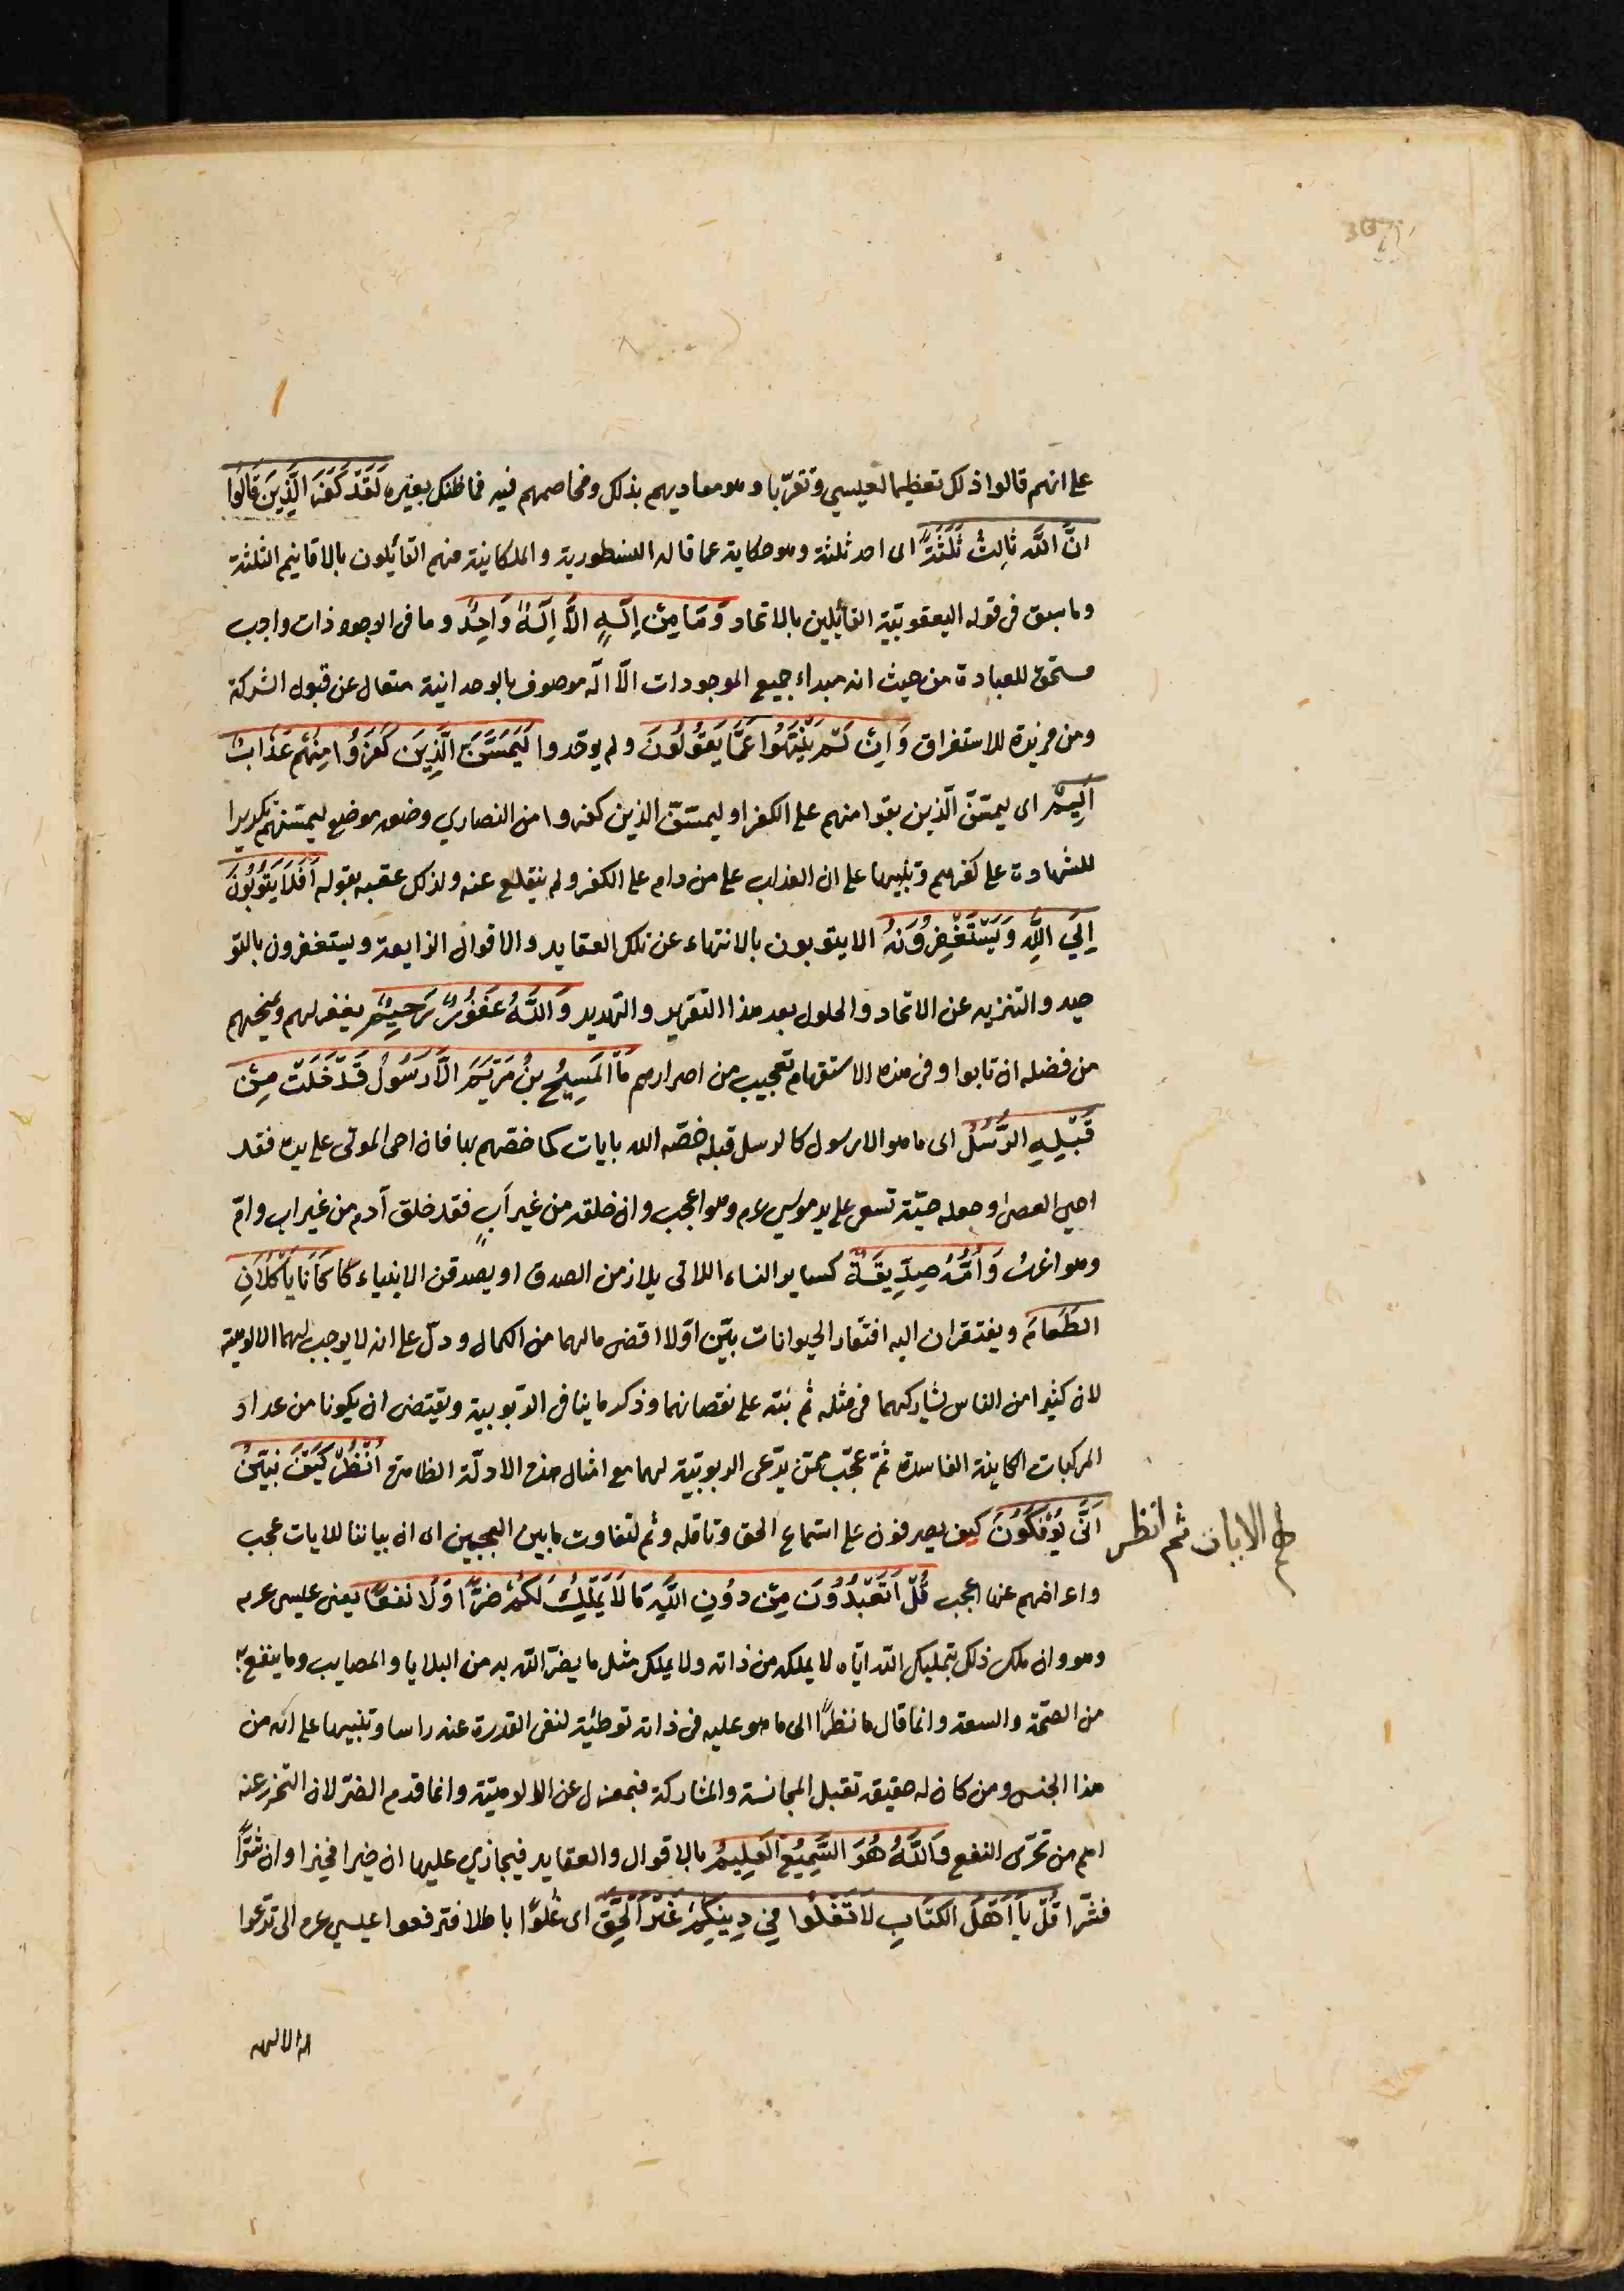 على انهم قالوا ذلك تعظيما لعيسي وتقرّبا وهو معاديهم بذلك ومخاصمهم فيه فما ظنك بغيره لَقَدْ كَفَرَ الَّذِينَ قَالُوا
اِنَّ اللَّهَ ثَالِثُ ثَلٰثَةٍ اى احد ثلثة وهو حكاية عما قاله النسطورية والملكانية منهم القائلون بالاقانيم الثلثة
وما سبق فى قوله اليعقوبيّة القائلين بالاتحاد وَمَا مِنْ اِلَهٍ اِلَّا اِلَهٌ وَاحِدٌ وما فى الوجود ذات واجب
مستحق للعبادة من حيث انه مبداء جميع الموجودات الّا الٓه موصوف بالوحدانية متعال عن قبول الشركة
ومن مزيدة للاستغراق وَاِنْ لَمْ يَنْتَهُوا عَمَّا يَقُولُونَ ولم يوحّدوا لَيَمَسَّنَّ الَّذِينَ كَفَرُوا مِنْهُمْ عَذَابٌ
اَلِيمٌ اى ليمسّنّ الّذين بقوا منهم على الكفر او ليمسّنّ الذين كفروا من النصاري وضعه موضع ليمسّنهم تكريرا
للشهادة على كفرهم وتنبيها على ان العذاب على من دام على الكفر ولم ينقلع عنه ولذلك عقبه بقوله اَفَلَا يَتُوبُونَ
اِلَي اللَّهِ وَيَسْتَغْفِرُونَهُ الا يتوبون بالانتهاء عن تلك العقايد والاقوال الزايعة ويستغفرون بالتو
حيد والتنزيه عن الاتحاد والحلول بعد هذا التقرير والتهديد وَاللَّهُ غَفُورٌ رَحِيمٌ يغفر لهم ويمنحهم
من فضله ان تابوا وفى هذه الاستفهام تعجيب من اصرارهم مَا الْمَسِيحُ بْنُ مَرْيَمَ اِلَّا رَسُولٌ قَدْ خَلَتْ مِنْ
قَبْلِهِ الرُّسُلُ اى ما هو الا رسول كالرسل قبله خصّه الله بايات كما خصّهم بها فان احى الموتى على يده فقد
احيى العصى وجعله حيّة تسعى على يد موسي عم وهو اعجب وان خلقه من غير اَبٍ فقد خلق آدم من غير اب وامّ
وهو اغرب وَاُمُّهُ صِدِّيقَةٌ كساير النساء اللاتى يلازمن الصدق او يصدقن الانبياء كَانَا يَأْكُلَانِ
الطَّعَامَ ويفتقران اليه افتقار الحيوانات بيّن اوّلا اقصى مالهما من الكمال ودلّ على انه لا يوجب لهما الالوهية
لان كثيرا من الناس يشاركهما فى مثله ثم نبّه على نقصانهما وذكر ما ينافى الرّبوبية ويقتضى ان يكونا من عداد
المركبات الكاينة الفاسدة ثمّ عجّب ممّن يدّعى الربوبيّة لهما مع امثال هذه الادلّة الظاهرة اُنْظُرْ كَيْفَ نُبَيِّنُ
لهم الايات ثم انظر
اَنَّى يُؤْفَكُونَ كيف يصرفون على استماع الحق وتامّله وثم لتفاوت ما بين العجبين اى ان بياننا للايات عجب
واعراضهم عنها اعجب قُلْ اَتَعْبُدُونَ مِنْ دُونِ اللَّهِ مَا لَا يَمْلِكُ لَكُمْ ضَرًّا وَلَا نَفْعًا يعنى عيسى عم
وهو وان ملك ذلك بتمليك الله ايّاه لا يملكه من ذاته ولا يملك مثل ما يضرّ الله به من البلايا والمصايب وما ينفع به
من الصحّة والسعة وانما قال ما نظرًا الى ما هو عليه فى ذاته توطئة لنفى القدرة عنه راسا وتنبيها على انّه من
هذا الجنس ومن كان له حقيقة تقبل المجانسة والمشاركة فبمعزل عن الالوهيّة وانما قدم الضرّ لان التحرز عنه
اهم من تحرّى النفع وَاللَّهُ هُوَ السَّمِيعُ الْعَلِيمُ بالاقوال والعقايد فيجازي عليها ان خيرا فخيرا وان شرًّا
فشرّا قُلْ يَا اَهْلَ الْكِتَابِ لَا تَغْلُوا فِي دِينِكُمْ غَيْرَ الْحَقِّ اى غلوًّا باطلا فترفعوا عيسي عم الى تدّعوا
له الالهيه